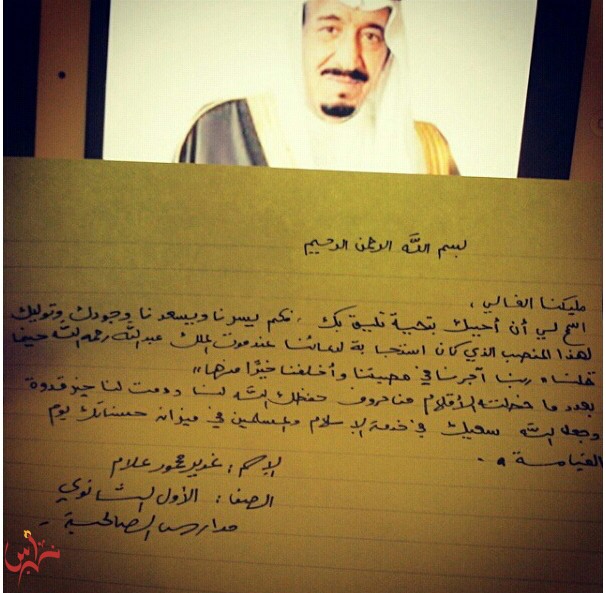 بسم الله الرحمن الرحيم
مليكنا الغالي ،
اسمح لي أن أحييك بتحية تليق بك ، فكم يسرنا ويسعدنا وجودك وتوليك
لهذا المنصب الذي كان استجابة لدعائنا عند موت الملك عبدالله رحمه الله حينما
قلنا « ربنا آجرنا في مصيبتنا وأخلفنا خيرًا منها »
بعدد ما خطت الأقلام من حروف حفظك الله لنا ودمت لنا خير قدوة
وجعل الله سعيك في خدمة الإسلام والمسلمين في ميزان حسناتك يوم
القيامة .
الإسم : غدير محمود علام
الصف : الأول الثانوي
مدارس الصالحية
نبراس